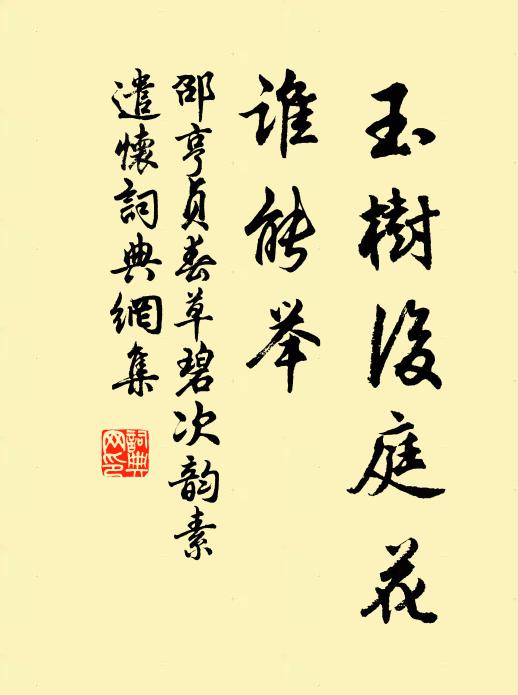 玉樹後庭花
誰能举
邵亨貞春草碧次韵素
遣懷詞典網集
詞典网印